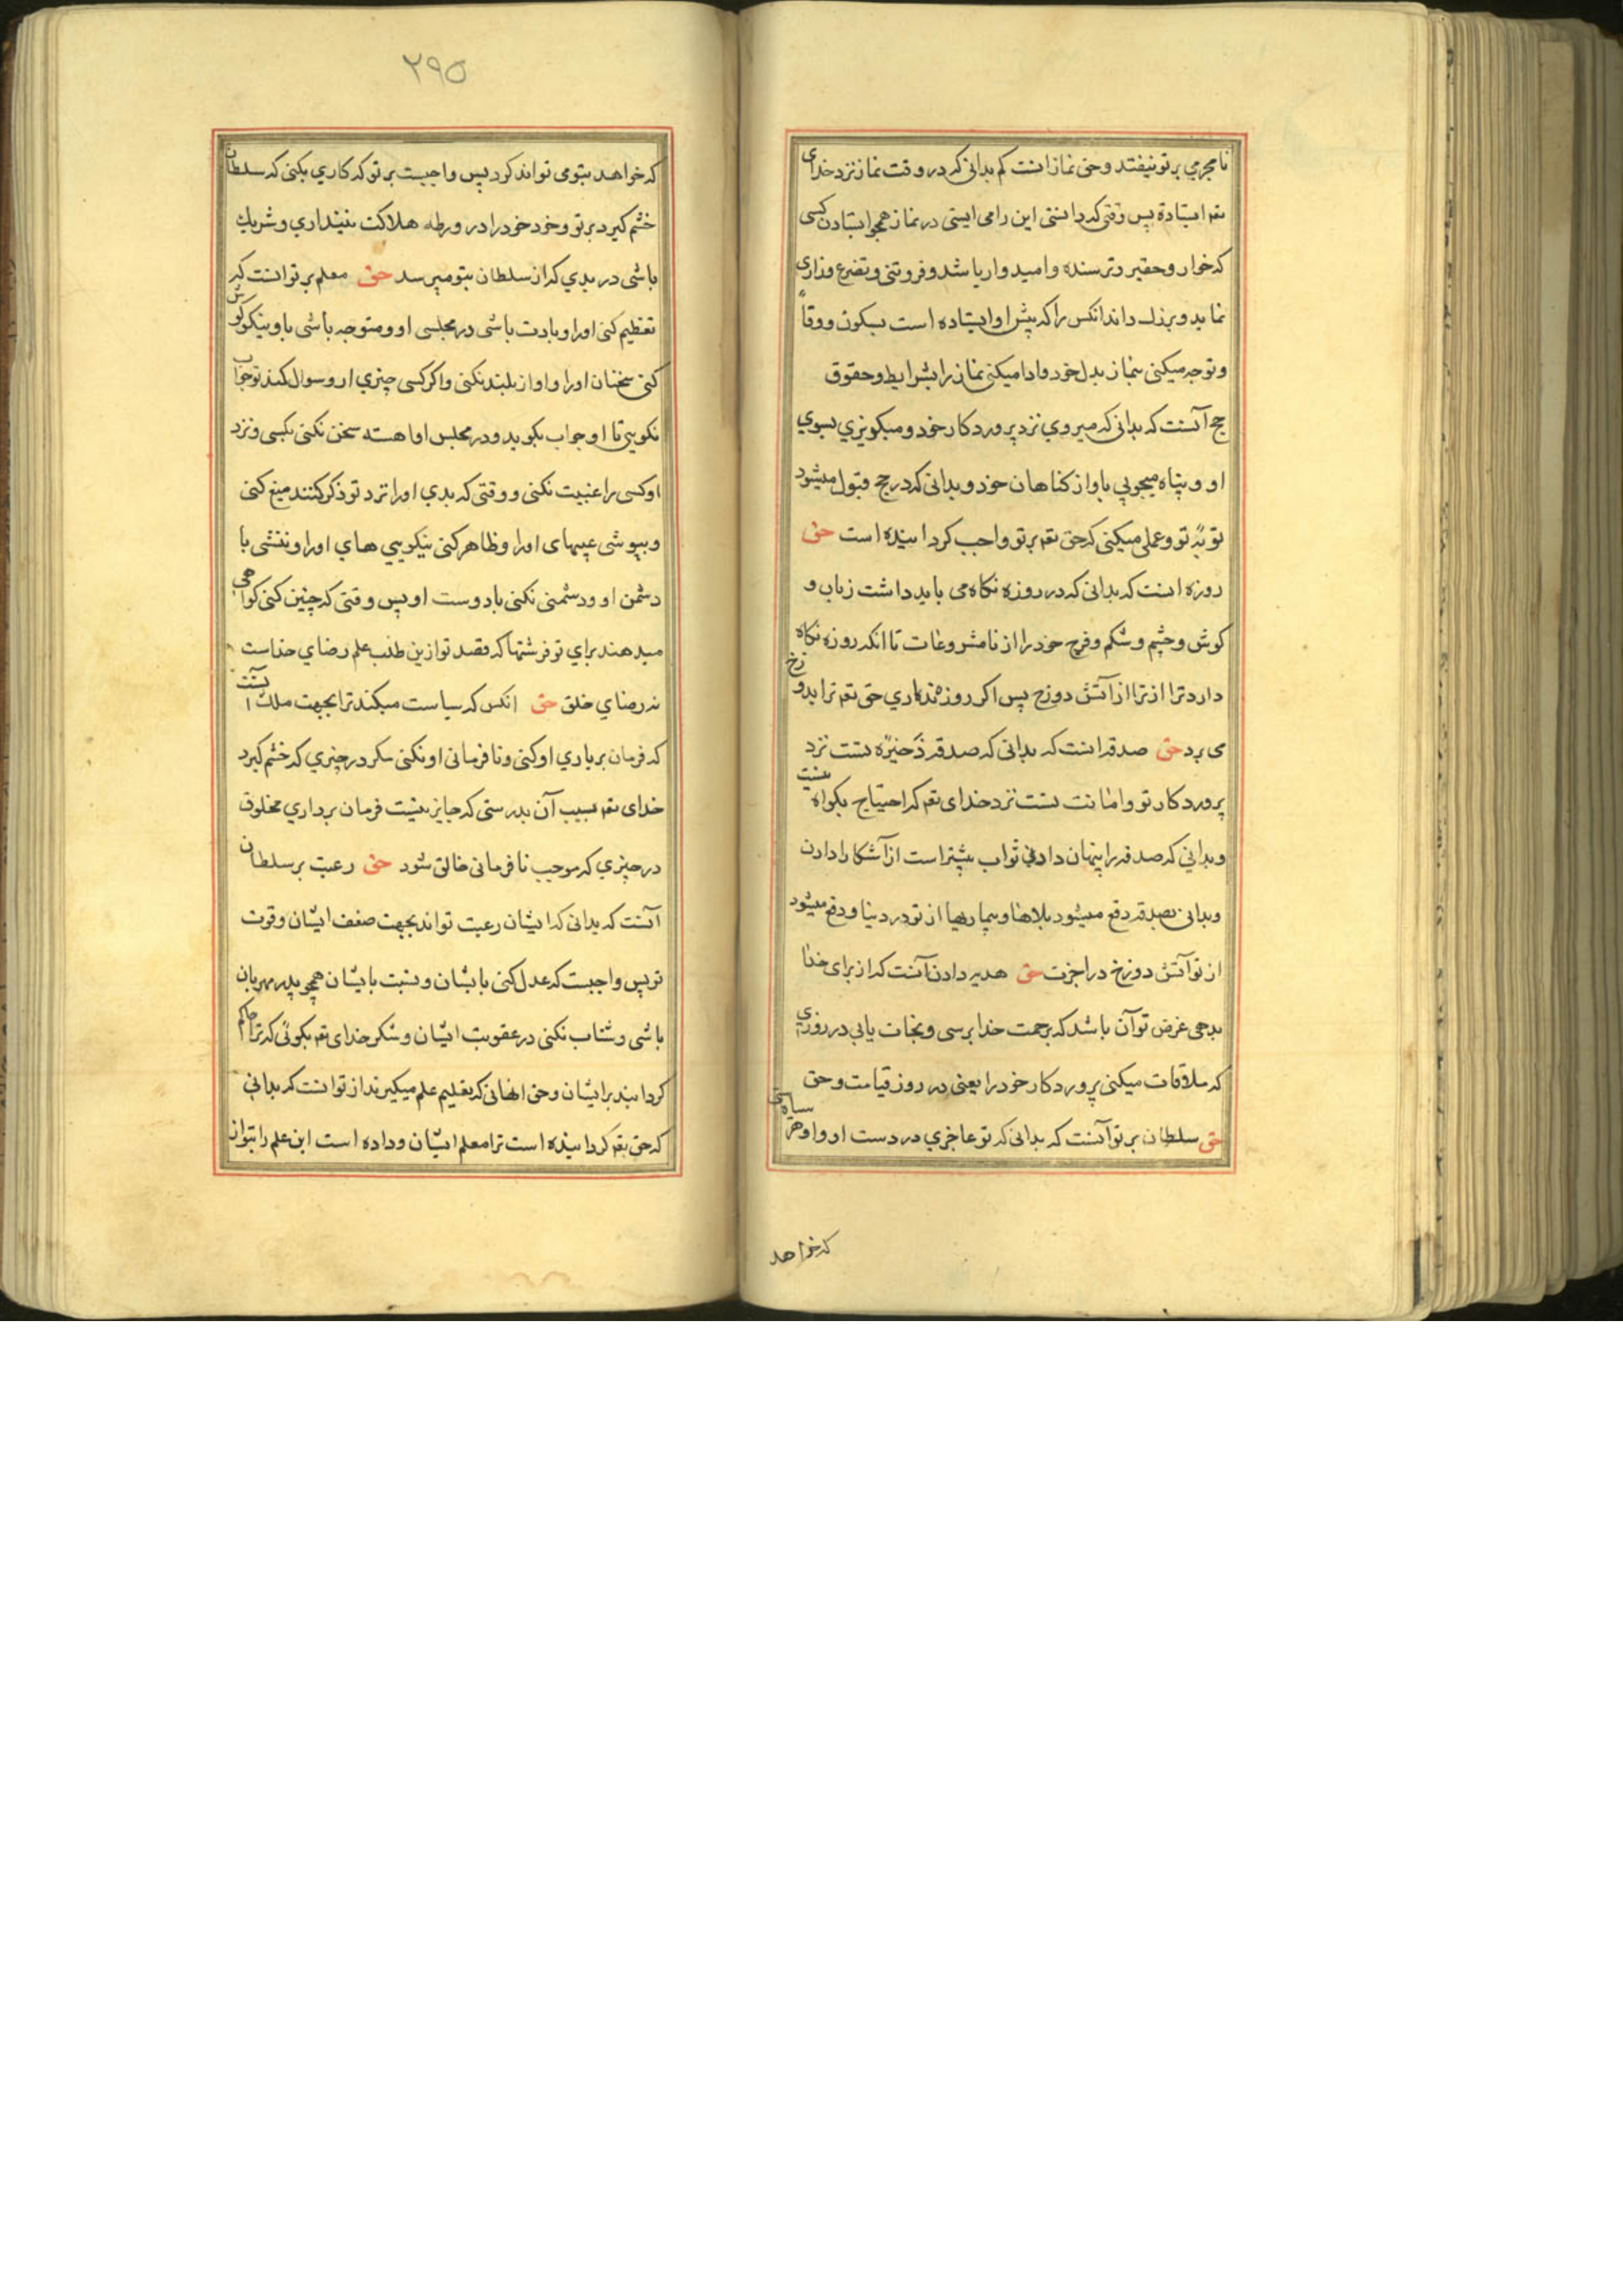 نامحرمي بر تو نیفتد و حق نماز انست که بدانی که در وقت نماز نزد خدای
تعم ایستادهٔ پس وقتی که دانستی این را می ایستی در نماز همچو ایستادن کسی
که خوار و حقیر و ترسنده و امیدوار باشد و فروتنی و تضرع و زاری
نماید و بزرك داند انکس را که پیش او ایستاده است بسکون و وقار
و توجه میکنی بنماز بدل خود و ادا میکنی نماز را بشرایط و حقوق
حج آنست که بدانی که میروي نزد پروردکار خود و میکریزي بسوي
او و پناه میجویي باو از کناهان خود و بدانی که در حج قبول میشود
توبهٔ تو و عملی میکنی که حق تعم بر تو واجب کردانیده است حق
روزه انست که بدانی که در روزه نکاه می باید داشت زبان و
کوش و چشم و شکم و فرج خود را از نامشروعات تا انکه روزه نکاه
دارد ترا از ترا از آتش دوزخ پس اکر روزه نداري حق تعم ترا بدوزخ
می برد حق صدقه انست که بدانی که صدقه ذخیرهٔ تست نزد
پروردکار تو و امانت تست نزد خدای تعم که احتیاج بکواه نیست
و بدانی که صدقه را پنهان دادن ثواب بیشتر است از آشکارا دادن
و بدانی بصدقه دفع میشود بلاها و بیماریها از تو در دنیا و دفع میشود
از تو آتش دوزخ در اخرت حق هدیه دادن آنست که از برای خدا
بدهی غرض تو آن باشد که برحمت خدا برسی و نجات یابی در روزي
که ملاقات میکنی پروردکار خود را یعنی در روز قیامت و حق
حق سلطان بر تو آنست که بدانی که تو عاجزي در دست او و او هر سیاستی
که خواهد
۲۹۵
که خواهد بتو می تواند کرد پس واجبست بر تو که کاري بکنی که سلطان
خشم کیرد بر تو و خود خود را در ورطه هلاکت نینداري و شریك
باشی در بدي که از سلطان بتو میرسد حق معلم بر تو انست که
تعظیم کنی او را و بادب باشی در مجلس او و متوجه باشی باو و نیکو کوش
کنی سخنان او را و اواز بلند نکنی و اکر کسی چیزي از و سوال کند تو جواب
نکویي تا او جواب بکوید و در مجلس او اهسته سخن نکنی بکسی و نزد
او کسی را غیبت نکنی و وقتی که بدي او را نزد تو ذکر کنند منع کنی
و بپوشی عیبهای او را و ظاهر کنی نیکویي هاي او را و ننشی با
دشمن او و دشمنی نکنی با دوست او پس وقتی که چنین کنی کواهی
میدهند براي تو فرشتها که قصد تو ازین طلب علم رضاي خداست
نه رضاي خلق حق انکس که سیاست میکند ترا بجهت ملك آنست
که فرمان برداري او کنی و نافرمانی او نکنی مکر در چیزي که خشم کیرد
خدای تعم بسبب آن بدرستی که جایز نیست فرمان برداري مخلوق
در چیزي که موجب نافرمانی خالق شود حق رعیت بر سلطان
آنست که بدانی که ایشان رعیت تواند بجهت ضعف ایشان و قوت
تو پس واجبست که عدل کنی با ایشان و نسبت بایشان همچو پدر مهربان
باشی و شتاب نکنی در عقوبت ایشان و شکر خدای تعم بکوئی که ترا حاکم
کردانید بر ایشان و حق انهانی که تعلیم علم میکیرند از تو انست که بدانی
که حق تعم کردانیده است ترا معلم ایشان و داده است این علم را بتو از